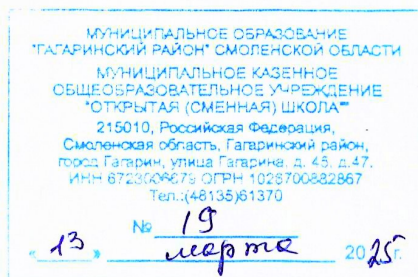 МУНИЦИПАЛЬНОЕ ОБРАЗОВАНИЕ
"ГАГАРИНСКИЙ РАЙОН" СМОЛЕНСКОЙ ОБЛАСТИ
МУНИЦИПАЛЬНОЕ КАЗЕННОЕ
ОБЩЕОБРАЗОВАТЕЛЬНОЕ УЧРЕЖДЕНИЕ
"ОТКРЫТАЯ (СМЕННАЯ) ШКОЛА"
215010, Российская Федерация,
Смоленская область, Гагаринский район,
город Гагарин, улица Гагарина, д. 45, д.47.
ИНН 6723006679 ОГРН 1026700882867
Тел.:(48135)61370
№ 19
«13» марта 2025г.